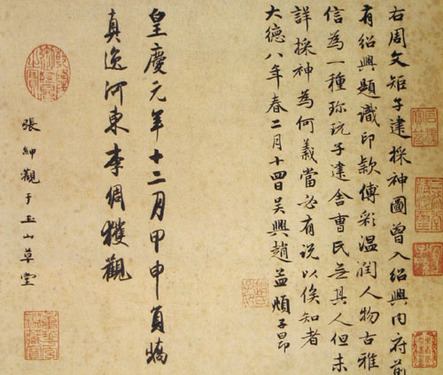 右周文矩子建採神圖曾入紹興內府前
有紹興題識印款傅彩溫潤人物古雅
信為一種珎玩子建舍曹氏無其人但未
詳採神為何義當必有说以俟知者
大德八年春二月十四日吳興趙孟頫子昂
皇慶元年十二月甲申負嶠
真逸河東李倜獲觀
張紳觀于玉山草堂